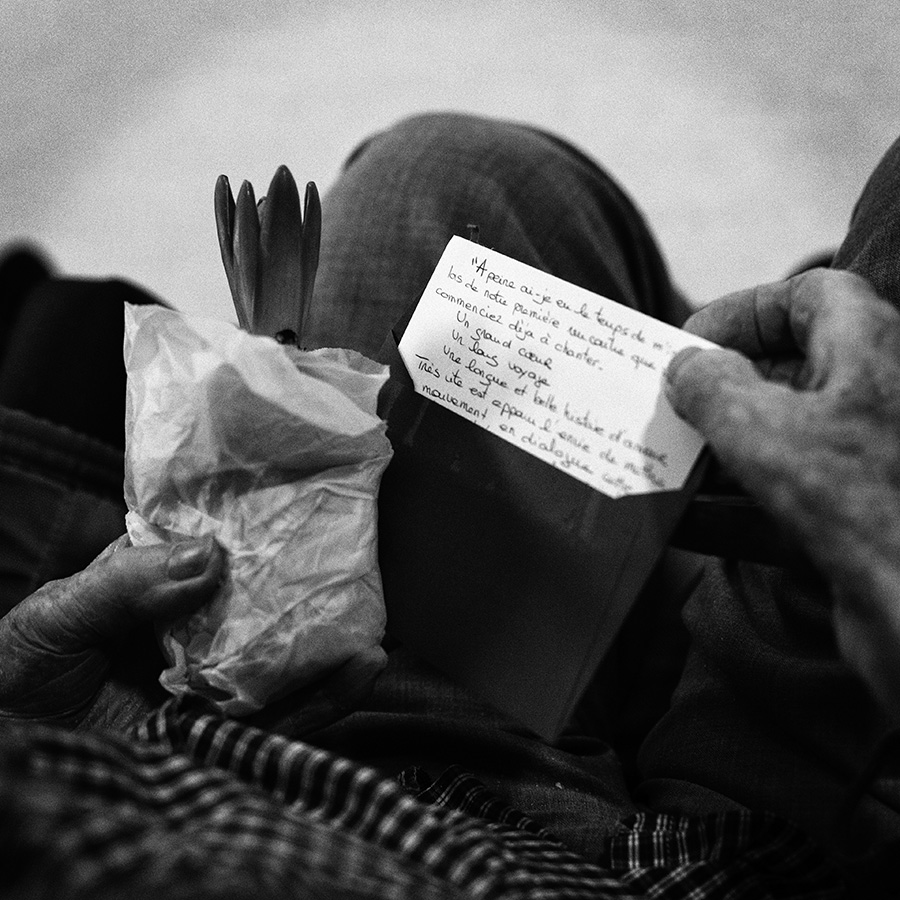 "A peine ai-je eu le temps de m'
las de notre première rencontre que
commenciez déjà à chanter.
Un grand cœur
Un long voyage
Une longue et belle histoire d'amour
Très vite est apparu l'envie de mettre
mouvement, en dialogue cette